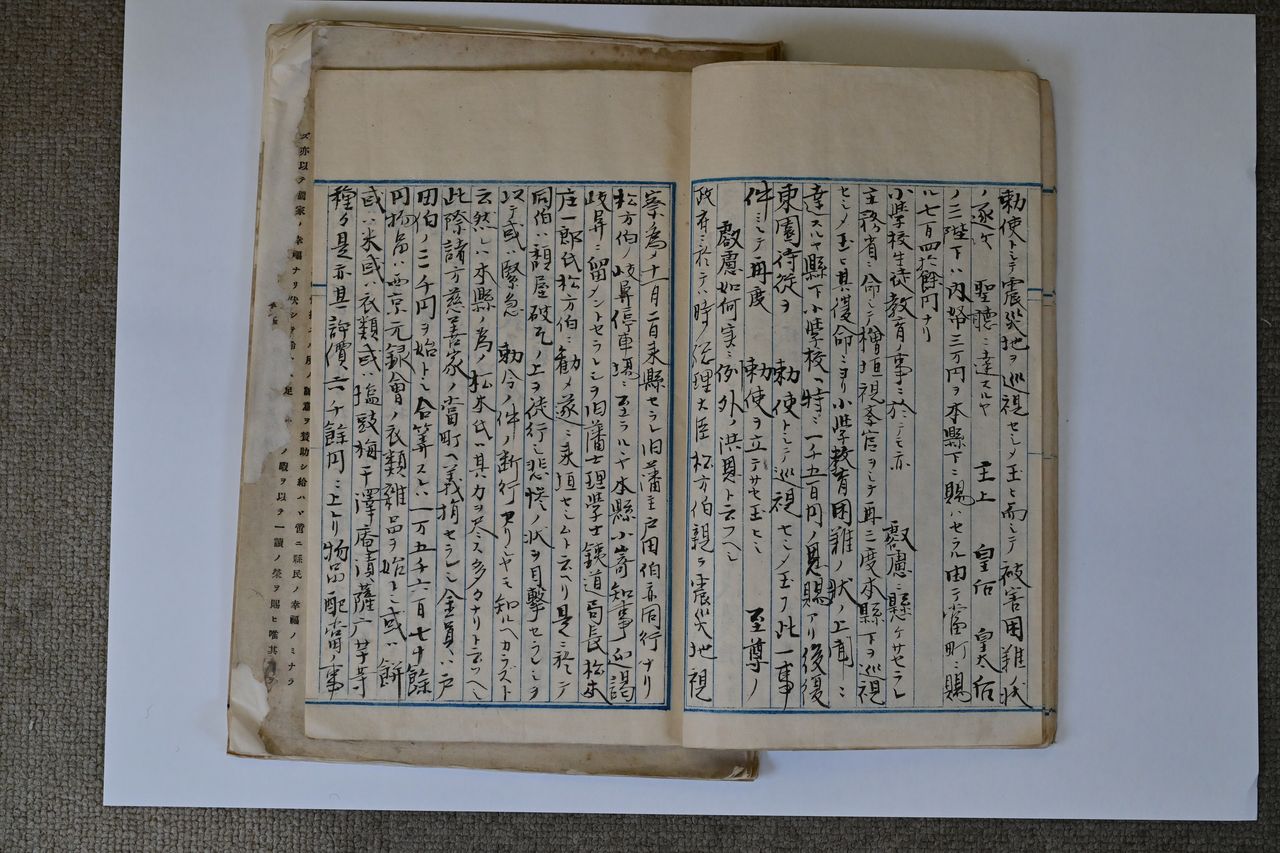 勅使トシテ震災地ヲ巡視セシメ玉ヒ而シテ被害困難ノ状
ノ逐次　聖聴ニ達スルヤ　主上　皇后　皇太后
ノ三陛下ハ内帑三万円ヲ本縣下ニ賜ハセラル由テ當町ニ賜
ル七百四拾餘円ナリ
小学校生徒教育ノ事ニ於テモ亦　叡慮ニ懸ケサセラレ
主務省ニ命シテ檜垣視学官ヲシテ再三度本縣下ヲ巡視
セシメ玉ヒ其復命ニヨリ小学教育困難ノ状ノ上聞ニ
達スルヤ縣下小学校ヘ特ニ一千五百円ノ恩賜アリ後復
東園侍従ヲ　勅使トシテ巡視セシメ玉フ此一事
件ニシテ再度　勅使ヲ立テサセ玉ヒシ　至尊ノ
叡慮如何実ニ例外ノ洪恩ト云フヘシ
政府ニ於テ時ノ総理大臣松方伯親ラ震災地視
察ノ為メ十一月二日来縣セラレ旧藩主戸田伯亦同行ナリ
松方伯ノ岐阜停車場ニ至ラルヽヤ本縣小嵜知事迎謁
岐阜ニ留メントセラレシヲ旧藩士理学士鉄道局長松本
庄一郎氏松方伯ニ勧メ遂ニ来垣セムト云ヘリ是ニ於テ
同伯ハ頽屋破瓦ノ上ヲ徒行シ悲惨ノ状ヲ目撃セラレシヲ
以テ或ハ緊急　勅令ノ件ノ断行アリシヤモ知ルヘカラスト
云然レハ本縣ノ為メ松本氏ハ其力ヲ尽ス多タナリト云フヘシ
此際諸方慈善家ノ當町ヘ義捐セラレシ金員ハ戸
田伯ノ二千円ヲ始トシ合算スレハ一万五千六百七十餘
円物品ハ西京元録會ノ衣類雑品ヲ始トシ或ハ餅
或ハ米或ハ衣類或ハ塩豉梅干澤庵漬薩广芋等
種々是亦其評價六千餘円ニ上リ物品配當ノ事
ノ願意ヲ賛助シ給ハヽ啻ニ縣民ノ幸福ノミナラ
ス亦以テ國家ノ幸福ナリ
ノ暇ヲ以テ一讀ノ榮ヲ賜ヒ